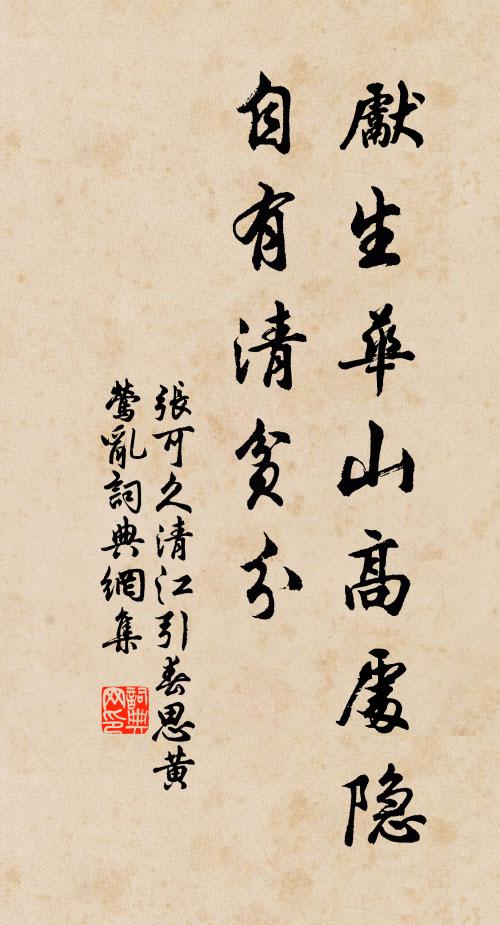 獻生華山高處隐
自有清貧分
張可久清江引春思黃
鶯亂詞典網集
詞典
网印